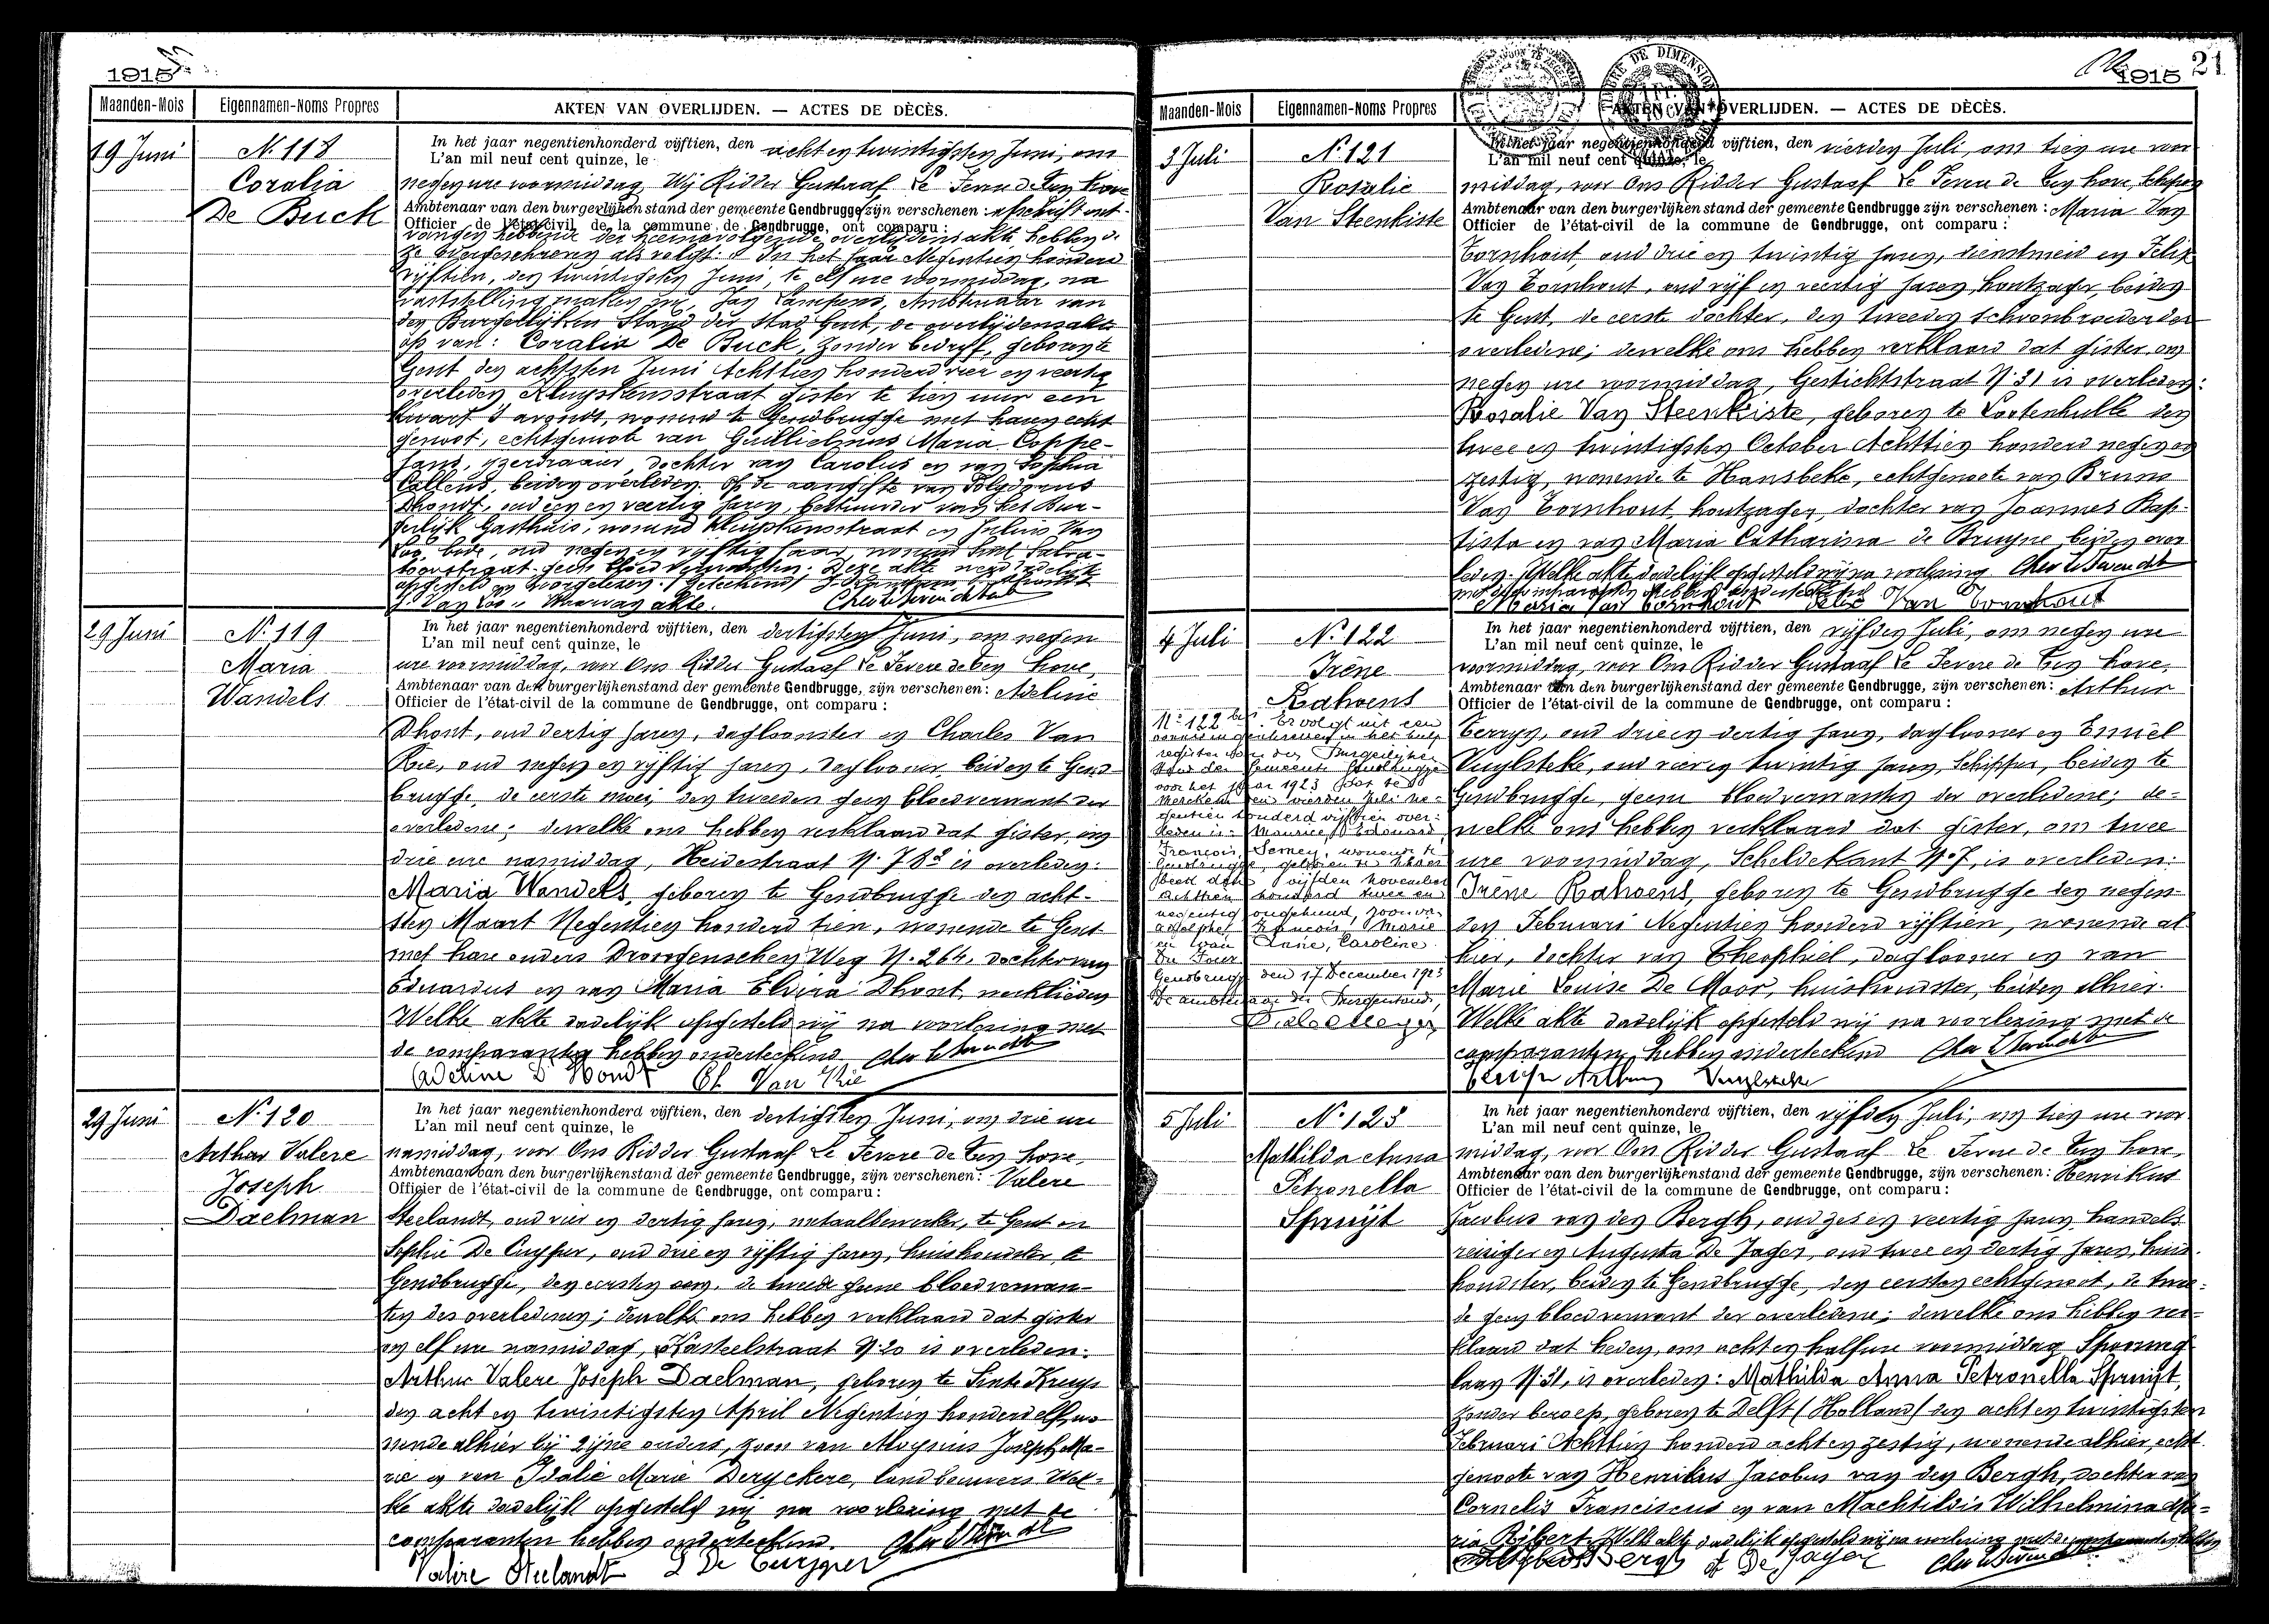 1915
Maanden-Mois Eigennamen-Noms Propres AKTEN VAN OVERLIJDEN. — ACTES DE DÈCÈS.
19 Juni
N. 118
Coralia
De Buck
In het jaar negentienhonderd vijftien, den acht en twintigsten Juni, om
L'an mil neuf cent quinze, le
negen ure voormiddag, Wij Ridder Gustaaf Le Fevere de Ten hove
Ambtenaar van den burgerlijken stand der gemeente Gendbrugge zijn verschenen: afschrift ont-
Officier de l'état-civil de la commune de Gendbrugge, ont comparu:
vangen hebbende der hiernavolgende overlijdensakte hebben de
ze overgeschreven als volgt: In het jaar Negentien honderd
vijftien, den twintigsten Juni, te elf ure voormiddag, na
vaststelling maken wij, Jan Lampens, Ambtenaar van
den Burgerlijken Stand der stad Gent, de overlijdensakte
op van: Coralia De Buck, zonder bedrijf, geboren te
Gent den achtsten Juni Achttien honderd vier en veertig
overleden Kluyskensstraat gister te tien uur een
kwart 's avonds, wonend te Gendbrugge met haren echt
genoot, echtgenoote van Guillielmus Maria Coppe-
jans, ijzerdraaier, dochter van Carolus en van Sophia
Callens, beiden overleden. Op de aangifte van Polydorus
Dhondt, oud een en veertig jaren, bestuurder van het Bur-
gerlijk Gasthuis, wonend Kluyskensstraat en Julius Van
Loo, bode, oud negen en vijftig jaar, wonend
geen bloedverwanten. Deze akte werd dadelijk
opgesteld en voorgelezen. (Geteekend)
J. Van Loo. Waarvan akte.
29 Juni
N. 119
Maria
Wandels
In het jaar negentienhonderd vijftien, den dertigsten Juni, om negen
L'an mil neuf cent quinze, le
ure voormiddag, voor Ons Ridder Gustaaf Le Fevere de Ten hove,
Ambtenaar van den burgerlijkenstand der gemeente Gendbrugge, zijn verschenen: Adeline
Officier de l'état-civil de la commune de Gendbrugge, ont comparu:
Dhont, oud dertig jaren, dagloonster en Charles Van
Rie, oud negen en vijftig jaren, daglooner, beiden te Gend-
brugge, de eerste moei, den tweeden geen bloedverwant der
overledene; dewelke ons hebben verklaard dat gister, om
drie ure namiddag, Heidestraat N. 78 is overleden:
Maria Wandels, geboren te Gendbrugge den acht-
sten Maart Negentien honderd tien, wonende te Gent
met hare ouders Drongenschen Weg N. 264, dochter van
Eduardus en van Maria Elvira Dhont, werklieden
Welke akte dadelijk opgesteld wij na voorlezing met
de comparanten hebben onderteekend.
Adeline D'Hondt Ch Van Rie
29 Juni
N. 120
Arthur Valere
Joseph
Daelman
In het jaar negentienhonderd vijftien, den dertigsten Juni, om drie ure
L'an mil neuf cent quinze, le
namiddag, voor Ons Ridder Gustaaf Le Fevere de Ten hove,
Ambtenaar van den burgerlijkenstand der gemeente Gendbrugge, zijn verschenen: Valere
Officier de l'état-civil de la commune de Gendbrugge, ont comparu:
Steelandt, oud vier en dertig jaren, metaalbewerker, te Gent en
Sophie De Cuyper, oud drie en vijftig jaren, huishoudster, te
Gendbrugge, den eersten oom, de tweede geene bloedverwan-
ten des overledenen; dewelke ons hebben verklaard dat gister
om elf ure namiddag, Kasteelstraat N. 20 is overleden:
Arthur Valere Joseph Daelman, geboren te Sinte Kruis
den acht en twintigsten April Negentien honderd elf, wo-
nende alhier bij zijne ouders, zoon van Aloysius Joseph Ma-
rie en van Idalie Marie Deryckere, landbouwers. Wel-
ke akte dadelijk opgesteld wij na voorlezing met de
comparanten hebben onderteekend.
Valère Steelandt S De Cuyper
1915 21
Maanden-Mois Eigennamen-Noms Propres AKTEN VAN OVERLIJDEN. — ACTES DE DÈCÈS.
3 Juli
N. 121
Rosalie
Van Steenkiste
In het jaar negentienhonderd vijftien, den vierden Juli, om tien ure voor
L'an mil neuf cent quinze, le
middag, voor Ons Ridder Gustaaf Le Fevere de Ten hove, Schepen
Ambtenaar van den burgerlijken stand der gemeente Gendbrugge zijn verschenen: Maria Van
Officier de l'état-civil de la commune de Gendbrugge, ont comparu:
Tornhout, oud drie en twintig jaren, dienstmeid en Felix
Van Tornhout, oud vijf en veertig jaren, houtzager, beiden
te Gent, de eerste dochter, den tweeden schoonbroeder der
overledene; dewelke ons hebben verklaard dat gister, om
negen ure voormiddag, Gestichtstraat N. 31 is overleden:
Rosalie Van Steenkiste, geboren te Lootenhulle den
twee en twintigsten October Achttien honderd negen en
zestig, wonende te Hansbeke, echtgenoote van Bruno
Van Tornhout, houtzager, dochter van Joannes Bap-
tista en van Maria Catharina de Bruyne, beiden over
leden. Welke akte dadelijk opgesteld wij na voorlezing
met de comparanten hebben onderteekend
Maria Van Tornhout Felix Van Tornhout
4 Juli
N. 122
Irène
Rahoens
N. 122 bis. Er volgt uit eene
register van den Burgerlijken
Stand der Gemeente Gendbrugge
voor het jaar 1923 dat te
Merckem den vierden Juli ne-
gentien honderd vijftien over-
leden is: Maurice, Edouard,
François Serney, wonende te
Gendbrugge, geboren te
den vijfden November
Achttien honderd twee en
negentig ongehuwd, zoon van
Adolphe, François, Marie
en van Anne, Caroline
Du Four
Gendbrugge den 17 December 1923
De ambtenaar der Burgerstand,
In het jaar negentienhonderd vijftien, den vijfden Juli, om negen ure
L'an mil neuf cent quinze, le
voormiddag, voor Ons Ridder Gustaaf Le Fevere de Ten hove,
Ambtenaar van den burgerlijkenstand der gemeente Gendbrugge, zijn verschenen: Arthur
Officier de l'état-civil de la commune de Gendbrugge, ont comparu:
Terryn, oud drie en dertig jaren, daglooner en Emiel
Vuylsteke, oud vier en twintig jaren, Schipper, beiden te
Gendbrugge, geene bloedverwanten der overledene; de-
welke ons hebben verklaard dat gister, om twee
ure voormiddag, Scheldekant N. 7, is overleden:
Irène Rahoens, geboren te Gendbrugge den negen-
den Februari Negentien honderd vijftien, wonende al
hier, dochter van Theophiel, daglooner en van
Marie Louise De Moor, huishoudster, beiden alhier.
Welke akte dadelijk opgesteld wij na voorlezing met de
comparanten hebben onderteekend
Terryn Arthur Vuylsteke
5 Juli
N. 123
Mathilda Anna
Petronella
Spruijt
In het jaar negentienhonderd vijftien, den vijfden Juli, om tien ure voor
L'an mil neuf cent quinze, le
middag, voor Ons Ridder Gustaaf Le Fevere de Ten hove,
Ambtenaar van den burgerlijkenstand der gemeente Gendbrugge, zijn verschenen: Henrikus
Officier de l'état-civil de la commune de Gendbrugge, ont comparu:
Jacobus van den Bergh, oud zes en veertig jaren, handels
reiziger en Augusta De Jager, oud twee en dertig jaren, huis-
houdster, beiden te Gendbrugge, den eersten echtgenoot, de twee-
de geen bloedverwant der overledene; dewelke ons hebben ver-
klaard dat heden, om acht en half ure voormiddag
laan N. 31, is overleden: Mathilda Anna Petronella Spruijt,
zonder beroep, geboren te Delft (Holland) den acht en twintigsten
Februari Achttien honderd acht en zestig, wonende alhier, echt
genoote van Henrikus Jacobus van den Bergh, dochter van
Cornelis Franciscus en van Machtildis Wilhelmina Ma-
ria Welke akte dadelijk opgesteld wij na voorlezing met de comparanten hebben
Bergh A De Jager